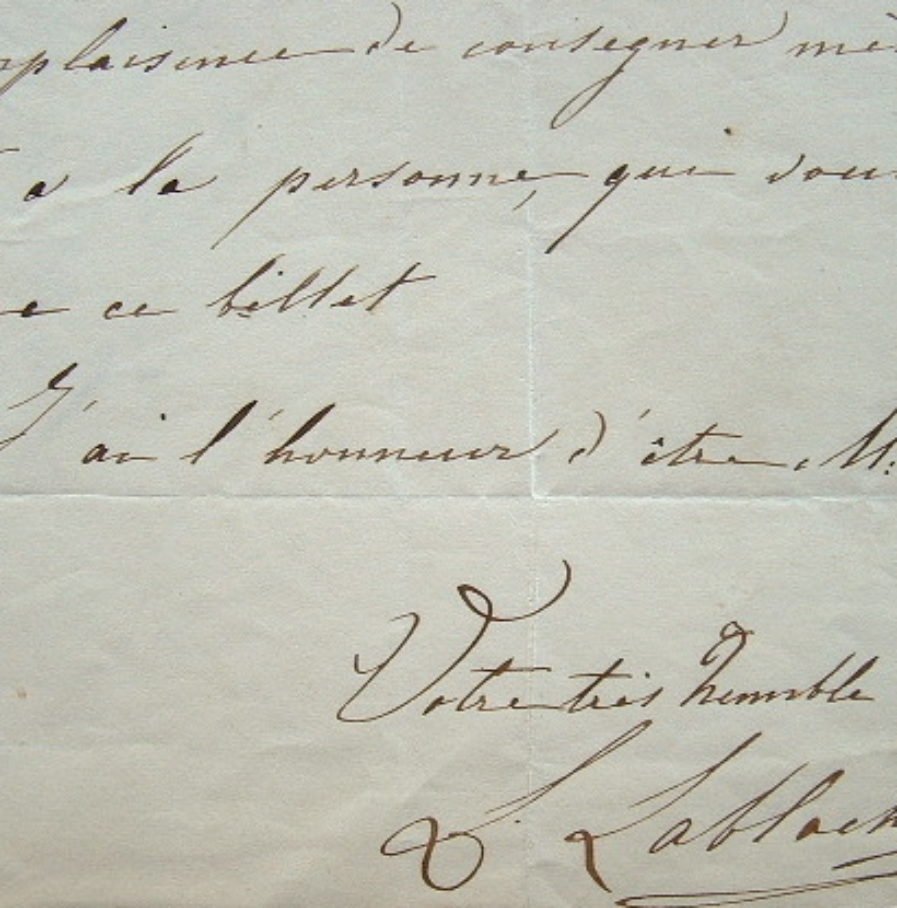 mplaisence de consegner mê
a la personne, qui vou
e ce billet
J'ai l'honneur d'être, M:
Votre tres humble
L. Lablach